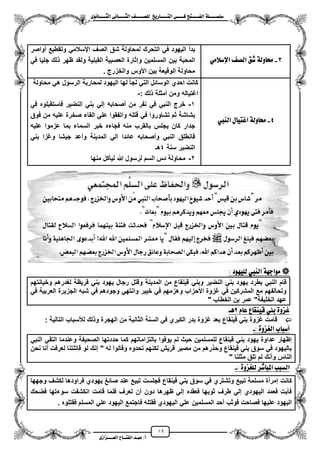 سلسلة الفتح في التاريخ للصف الثاني الثانوي
٣ ـ محاولة شق الصف الإسلامي
بدأ اليهود في التحرك لمحاولة شق الصف الإسلامي وتقطيع أواصر
المحبة بين المسلمين وإثارة العصبية القبلية ولقد ظهر ذلك جليا في
محاولة الوقيعة بين الأوس والخزرج .
٤ ـ محاولة اغتيال النبي
كانت احدي الوسائل التي لجأ لها اليهود لمحاربة الرسول هي محاولة
اغتياله ومن أمثلة ذلك :-
١- خرج النبي في نفر من أصحابه إلي بني النضير فاستقبلوه في
بشاشة ثم تشاوروا في قتله واتفقوا علي القاء صخرة عليه من فوق
جدار كان يجلس بالقرب منه فجاءه خبر السماء بما عزموا عليه
فانطلق النبي وأصحابه عائدا الي المدينة وأعد جيشا وغزا بني
النضير سنة ٤هـ
٢- محاولة دس السم لرسول الله ليأكل منها
الرسول ﷺ والحفاظ على السلم المجتمعي
مر "شاس بن قيس" أحد شيوخ اليهود بأصحاب النبي من الأوس والخزرج ، فوجدهم متحابين
فأمر فتى يهودي أن يجلس معهم ويذكرهم بيوم "بعاث"
يوم قتال بين الأوس والخزرج قبل الإسلام" فحدثت فتنة بينهما فرفعوا السلاح لقتال
بعضهم فبلغ الرسول ﷺ فخرج إليهم فقال "يا معشر المسلمين الله الله! أبدعوى الجاهلية وأنا
بين أظهركم بعد أن هداكم الله، فبكى الصحابة وعانق رجال الأوس الخزرج بعضهم البعض.
مواجهة النبي لليهود :
قام النبي بطرد يهود بني النضير وبني قينقاع من المدينة وقتل رجال يهود بني قريظة لغدرهم وخيانتهم
وتحالفهم مع المشركين في غزوة الأحزاب وهزمهم في خيبر وانتهي وجودهم في شبه الجزيرة العربية في
عهد الخليفة" عمر بن الخطاب "
غزوة بني قينقاع عام ٢هـ
قامت غزوة بني قينقاع بعد غزوة بدر الكبري في السنة الثانية من الهجرة وذلك للأسباب التالية :
أسباب الغزوة :ـ
إظهار عداوة يهود بني قينقاع للمسلمين حيث لم يوفوا بالتزاماتهم كما حددتها الصحيفة وعندما التقي النبي
باليهود في سوق بني قينقاع وحذرهم من مصير قريش لكنهم تحدوه وقالوا له " إنك لو قاتلتنا لعرفت أنا نحن
الناس وأنك لم تلق مثلنا "
السبب المباشر للغزوة :ـ
كانت إمرأة مسلمة تبيع وتشتري في سوق بني قينقاع فجلست تبيع عند صائغ يهودي فراودها لكشف وجهها
فأبت فعمد اليهودي إلي طرف ثوبها فعقده إلي ظهرها دون أن تعرف فلما قامت انكشفت سوءتها فضحك
اليهود عليها فصاحت فوثب أحد المسلمين علي اليهودي فقتله فاجتمع اليهود علي المسلم فقتلوه .
١٩